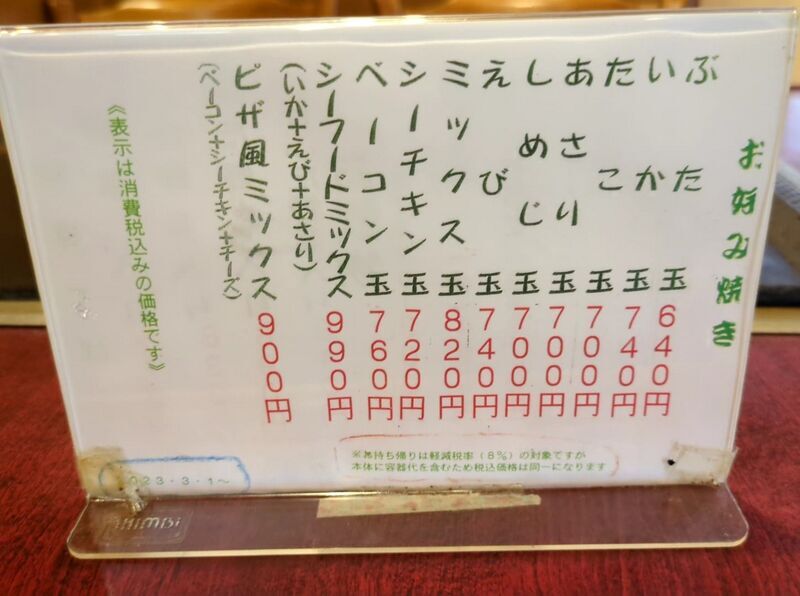 お好み焼き
ぶた玉640円
いか玉740円
たこ玉700円
あさり玉700円
しめじ玉700円
えび玉740円
ミックス玉820円
シーチキン玉720円
ベーコン玉760円
シーフードミックス990円
(いか+えび+あさり)
ピザ風ミックス900円
(ベーコン+シーチキン+チーズ)
《表示は消費税込みの価格です》
※お持ち帰りは軽減税率(8%)の対象ですが
本体に容器代を含むため税込価格は同一になります
023・3・1～